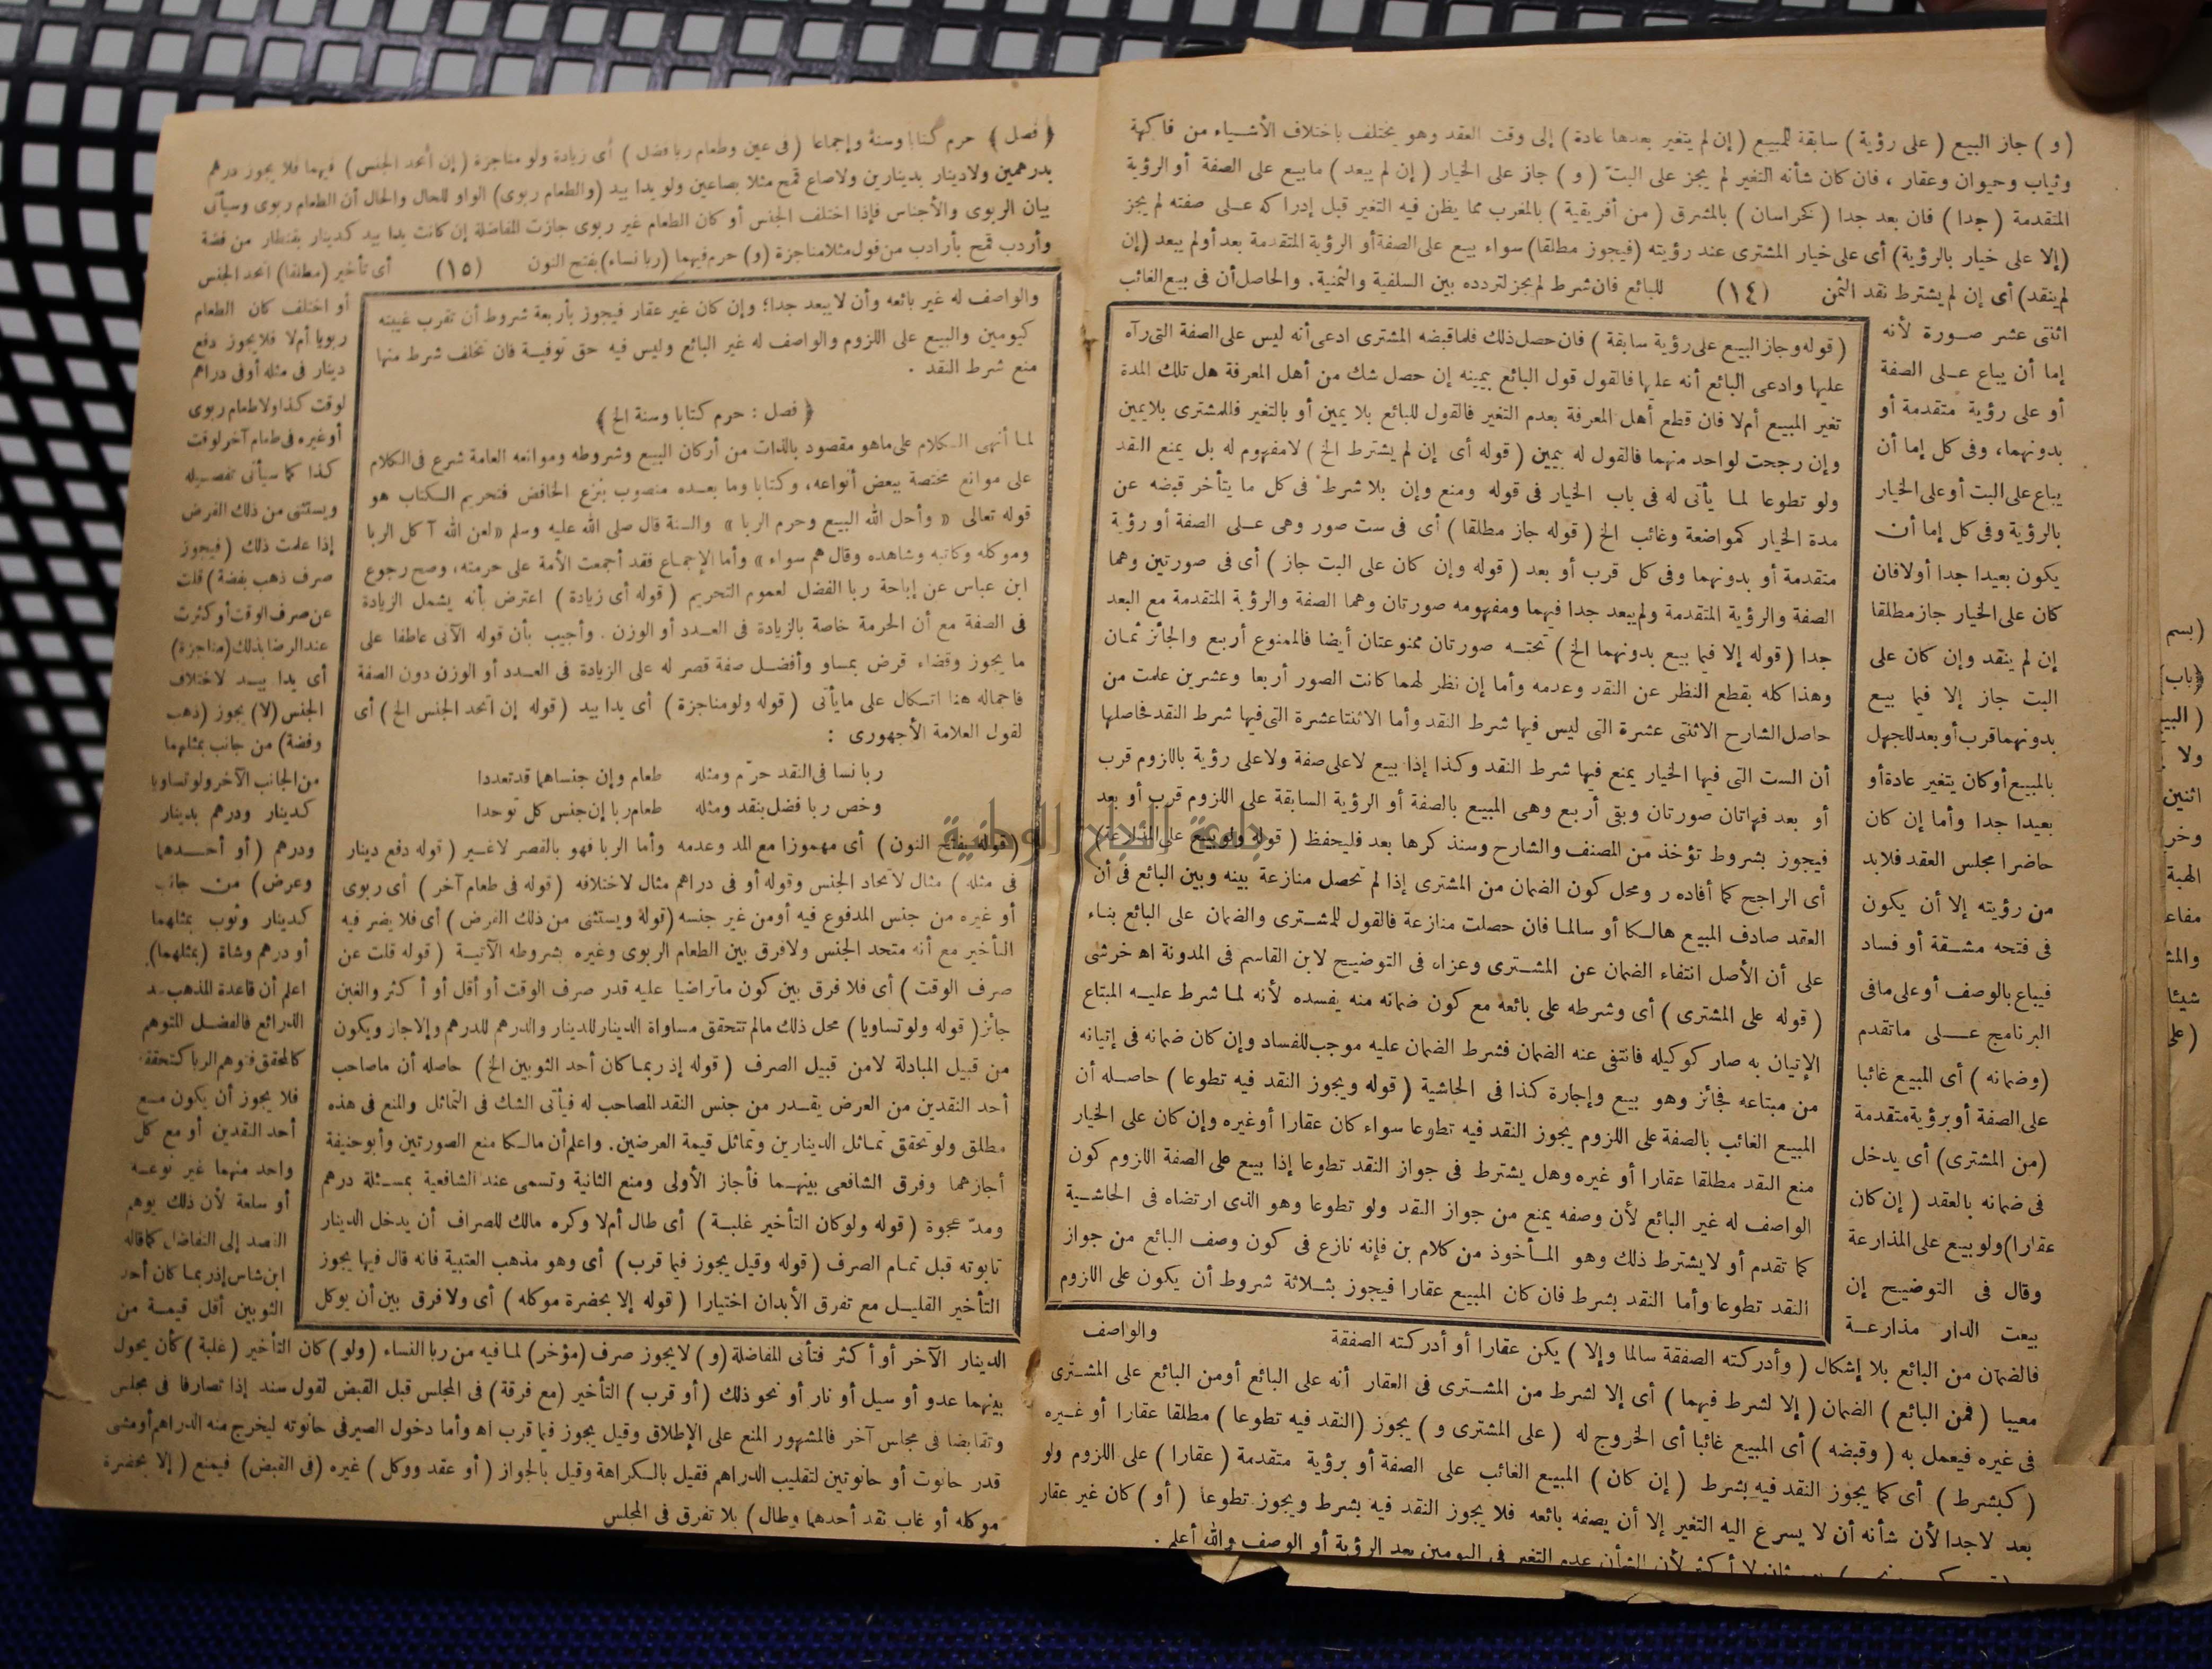 (و) جاز البيع (على رؤية) سابقة للمبيع (إن لم يتغير بعدها عادة) إلى وقت العقد وهو يختلف باختلاف الأشياء من فاكهة
وثياب وحيوان وعقار ، فان كان شأنه التغير لم يجز على البت (و) جاز على الخيار (إن لم يبعد) ما بيع على الصفة أو الرؤية
المتقدمة (جدا) فان بعد جدا (كخراسان) بالمشرق (من أفريقية) بالمغرب مما يظن فيه التغير قبل إدراكه على صفته لم يجز
(إلا على خيار بالرؤية) أى على خيار المشترى عند رؤيته (فيجوز مطلقا) سواء بيع على الصفة أو الرؤية المتقدمة بعد أو لم يبعد (إن
لم ينقد) أى إن لم يشترط نقد الثمن (١٤) للبائع فان شرط لم يجز لتردده بين السلفية والثمنية. والحاصل أن فى بيع الغائب
اثنتى عشر صورة لأنه
إما أن يباع على الصفة
أو على رؤية متقدمة أو
بدونهما، وفى كل إما أن
يباع على البت أو على الخيار
بالرؤية وفى كل إما أن
يكون بعيدا جدا أولا فان
كان على الخيار جاز مطلقا
إن لم ينقد وإن كان على
البت جاز إلا فيما بيع
بدونهما قرب أو بعد للجهل
بالمبيع أو كان يتغير عادة أو
بعيدا جدا وأما إن كان
حاضرا مجلس العقد فلا بد
من رؤيته إلا أن يكون
فى فتحه مشقة أو فساد
فيباع بالوصف أو على ما فى
البرنامج على ما تقدم
(وضمانه) أى المبيع غائبا
على الصفة أو برؤية متقدمة
(من المشترى) أى يدخل
فى ضمانه بالعقد (إن كان
عقارا) ولو بيع على المذارعة
وقال فى التوضيح إن
بيعت الدار مذارعة
(قوله وجاز البيع على رؤية سابقة) فان حصل ذلك فلما قبضه المشترى ادعى أنه ليس على الصفة التى رآه
عليها وادعى البائع أنه عليها فالقول قول البائع بيمينه إن حصل شك من أهل المعرفة هل تلك المدة
تغير المبيع أم لا فان قطع أهل المعرفة بعدم التغير فالقول للبائع بلا يمين أو بالتغير فللمشترى بلا يمين
وإن رجحت لواحد منهما فالقول له بيمين (قوله أى إن لم يشترط الخ) لا مفهوم له بل يمنع النقد
ولو تطوعا لما يأتى له فى باب الخيار فى قوله ومنع وإن بلا شرط فى كل ما يتأخر قبضه عن
مدة الخيار كمواضعة وغائب الخ (قوله جاز مطلقا) أى فى ست صور وهى على الصفة أو رؤية
متقدمة أو بدونهما وفى كل قرب أو بعد (قوله وإن كان على البت جاز) أى فى صورتين وهما
الصفة والرؤية المتقدمة ولم يبعد جدا فيهما ومفهومه صورتان وهما الصفة والرؤية المتقدمة مع البعد
جدا (قوله إلا فيما بيع بدونهما الخ) تحته صورتان ممنوعتان أيضا فالممنوع أربع والجائز ثمان
وهذا كله بقطع النظر عن النقد وعدمه وأما إن نظر لهما كانت الصور أربعا وعشرين علمت من
حاصل الشارح الاثنتى عشرة التى ليس فيها شرط النقد وأما الاثنتا عشرة التى فيها شرط النقد فحاصلها
أن الست التى فيها الخيار يمنع فيها شرط النقد وكذا إذا بيع لا على صفة ولا على رؤية باللزوم قرب
أو بعد فهاتان صورتان وبقى أربع وهى المبيع بالصفة أو الرؤية السابقة على اللزوم قرب أو بعد
فيجوز بشروط تؤخذ من المصنف والشارح وسنذكرها بعد فليحفظ (قوله ولو بيع على المذارعة)
أى الراجح كما أفاده ر ومحل كون الضمان من المشترى إذا لم تحصل منازعة بينه وبين البائع فى أن
العقد صادف المبيع هالكا أو سالما فان حصلت منازعة فالقول للمشترى والضمان على البائع بناء
على أن الأصل انتفاء الضمان عن المشترى وعزاه فى التوضيح لابن القاسم فى المدونة اه خرشى
(قوله على المشترى) أى وشرطه على بائعه مع كون ضمانه منه يفسده لأنه لما شرط عليه المبتاع
الإتيان به صار كوكيله فانتفى عنه الضمان فشرط الضمان عليه موجب للفساد وإن كان ضمانه فى إتيانه
من مبتاعه فجائز وهو بيع وإجارة كذا فى الحاشية (قوله ويجوز النقد فيه تطوعا) حاصله أن
المبيع الغائب بالصفة على اللزوم يجوز النقد فيه تطوعا سواء كان عقارا أو غيره وإن كان على الخيار
منع النقد مطلقا عقارا أو غيره وهل يشترط فى جواز النقد تطوعا إذا بيع على الصفة اللزوم كون
الواصف له غير البائع لأن وصفه يمنع من جواز النقد ولو تطوعا وهو الذى ارتضاه فى الحاشية
كما تقدم أو لا يشترط ذلك وهو المأخوذ من كلام بن فإنه نازع فى كون وصف البائع من جواز
النقد تطوعا وأما النقد بشرط فان كان المبيع عقارا فيجوز بثلاثة شروط أن يكون على اللزوم
والواصف
فالضمان من البائع بلا إشكال (وأدركته الصفقة سالما وإلا) يكن عقارا أو أدركته الصفقة
معيبا (فمن البائع) الضمان (إلا لشرط فيهما) أى إلا لشرط من المشترى فى العقار أنه على البائع أو من البائع على المشترى
فى غيره فيعمل به (وقبضه) أى المبيع غائبا أى الخروج له (على المشترى و) يجوز (النقد فيه تطوعا) مطلقا عقارا أو غيره
(كبشرط) أى كما يجوز النقد فيه بشرط (إن كان) المبيع الغائب على الصفة أو برؤية متقدمة (عقارا) على اللزوم ولو
بعد لا جدا لأن شأنه أن لا يسرع اليه التغير إلا أن يصفه بائعه فلا يجوز النقد فيه بشرط ويجوز تطوعا (أو) كان غير عقار
لا أكثر لأن الشأن عدم التغير فى اليومين بعد الرؤية أو الوصف والله أعلم .
﴿فصل﴾ حرم كتابا وسنة وإجماعا (فى عين وطعام ربا فضل) أى زيادة ولو مناجزة (إن اتحد الجنس) فيهما فلا يجوز درهم
بدرهمين ولا دينار بدينارين ولا صاع قمح مثلا بصاعين ولو يدا بيد (والطعام ربوى) الواو للحال والحال أن الطعام ربوى وسيأتى
بيان الربوى والأجناس فإذا اختلف الجنس أو كان الطعام غير ربوى جازت المفاضلة إن كانت يدا بيد كدينار بقنطار من فضة
وأردب قمح بأرادب من فول مثلا مناجزة (و) حرم فيهما (ربا نساء) بفتح النون (١٥) أى تأخير (مطلقا) اتحد الجنس
أو اختلف كان الطعام
ربويا أم لا فلا يجوز دفع
دينار فى مثله أو فى دراهم
لوقت كذا ولا طعام ربوى
أو غيره فى طعام آخر لوقت
كذا كما سيأتى تفصيله
ويستثنى من ذلك القرض
إذا علمت ذلك (فيجوز
صرف ذهب بفضة) قلت
عن صرف الوقت أو كثرت
عند الرضا بذلك (مناجزة)
أى يدا بيد لاختلاف
الجنس (لا) يجوز (ذهب
وفضة) من جانب بمثلهما
من الجانب الآخر ولو تساويا
كدينار ودرهم بدينار
ودرهم (أو أحدهما
وعرض) من جانب
كدينار وثوب بمثلهما
أو درهم وشاة (بمثلهما)
اعلم أن قاعدة المذهب سد
الذرائع فالفضل المتوهم
كالمحقق فتوهم الربا كتحققه
فلا يجوز أن يكون مع
أحد النقدين أو مع كل
واحد منهما غير نوعه
أو سلعة لأن ذلك يوهم
القصد إلى التفاضل كما قاله
ابن شاس إذ ربما كان أحد
الثوبين أقل قيمة من
والواصف له غير بائعه وأن لا يبعد جدا؛ وإن كان غير عقار فيجوز بأربعة شروط أن تقرب غيبته
كيومين والبيع على اللزوم والواصف له غير البائع وليس فيه حق توفية فان تخلف شرط منها
منع شرط النقد .
﴿فصل : حرم كتابا وسنة الخ﴾
لما أنهى الكلام على ما هو مقصود بالذات من أركان البيع وشروطه وموانعه العامة شرع فى الكلام
على موانع مختصة ببعض أنواعه، وكتابا وما بعده منصوب بنزع الخافض فتحريم الكتاب هو
قوله تعالى «وأحل الله البيع وحرم الربا» والسنة قال صلى الله عليه وسلم «لعن الله آكل الربا
وموكله وكاتبه وشاهده وقال هم سواء» وأما الإجماع فقد أجمعت الأمة على حرمته، وصح رجوع
ابن عباس عن إباحة ربا الفضل لعموم التحريم (قوله أى زيادة) اعترض بأنه يشمل الزيادة
فى الصفة مع أن الحرمة خاصة بالزيادة فى العدد أو الوزن . وأجيب بأن قوله الآتى عاطفا على
ما يجوز وقضاء قرض بمساو وأفضل صفة قصر له على الزيادة فى العدد أو الوزن دون الصفة
فاجماله هنا اتكال على ما يأتى (قوله ولو مناجزة) أى يدا بيد (قوله إن اتحد الجنس الخ) أى
لقول العلامة الأجهورى :
ربا نسا فى النقد حرّم ومثله طعام وإن جنساهما قد تعددا
وخص ربا فضل بنقد ومثله طعام ربا إن جنس كل توحدا
(قوله بفتح النون) أى مهموزا مع المد وعدمه وأما الربا فهو بالقصر لا غير (قوله دفع دينار
فى مثله) مثال لاتحاد الجنس وقوله أو فى دراهم مثال لاختلافه (قوله فى طعام آخر) أى ربوى
أو غيره من جنس المدفوع فيه أو من غير جنسه (قوله ويستثنى من ذلك القرض) أى فلا يضر فيه
التأخير مع أنه متحد الجنس ولا فرق بين الطعام الربوى وغيره بشروطه الآتية (قوله قلت عن
صرف الوقت) أى فلا فرق بين كون ما تراضيا عليه قدر صرف الوقت أو أقل أو أكثر والغبن
جائز (قوله ولو تساويا) محل ذلك ما لم تتحقق مساواة الدينار للدينار والدرهم للدرهم وإلا جاز ويكون
من قبيل المبادلة لا من قبيل الصرف (قوله إذ ربما كان أحد الثوبين الخ) حاصله أن ما صاحب
أحد النقدين من العرض يقدر من جنس النقد المصاحب له فيأتى الشك فى التماثل والمنع فى هذه
مطلق ولو تحقق تماثل الدينارين وتماثل قيمة العرضين. واعلم أن مالكا منع الصورتين وأبو حنيفة
أجازهما وفرق الشافعى بينهما فأجاز الأولى ومنع الثانية وتسمى عند الشافعية بمسئلة درهم
ومدّ عجوة (قوله ولو كان التأخير غلبة) أى طال أم لا وكره مالك للصراف أن يدخل الدينار
تابوته قبل تمام الصرف (قوله وقيل يجوز فيما قرب) أى وهو مذهب العتبية فانه قال فيها يجوز
التأخير القليل مع تفرق الأبدان اختيارا (قوله إلا بحضرة موكله) أى ولا فرق بين أن يوكل
الدينار الآخر أو أكثر فتأتى المفاضلة (و) لا يجوز صرف (مؤخر) لما فيه من ربا النساء (ولو) كان التأخير (غلبة) كأن يحول
بينهما عدو أو سيل أو نار أو نحو ذلك (أو قرب) التأخير (مع فرقة) فى المجلس قبل القبض لقول سند إذا تصارفا فى مجلس
وتقابضا فى مجلس آخر فالمشهور المنع على الإطلاق وقيل يجوز فيما قرب اه وأما دخول الصيرفى حانوته ليخرج منه الدراهم أو مشى
قدر حانوت أو حانوتين لتقليب الدراهم فقيل بالكراهة وقيل بالجواز (أو عقد ووكل) غيره (فى القبض) فيمنع (إلا بحضرة
موكله أو غاب نقد أحدهما وطال) بلا تفرق فى المجلس
جامعة النجاح الوطنية